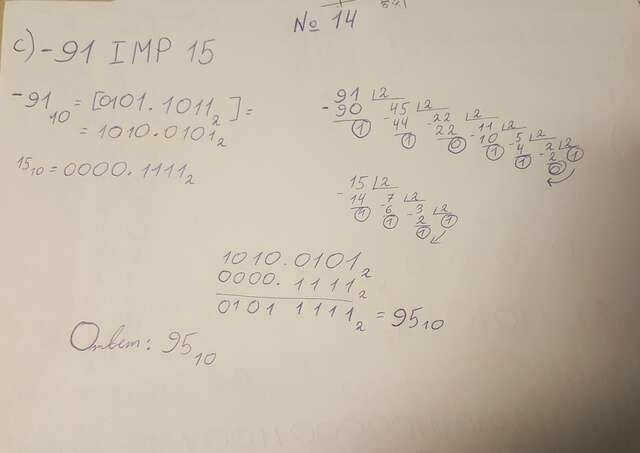 541
№ 14
c) -91 IMP 15
-91₁₀ = [0101.1011₂] =
= 1010.0101₂
15₁₀ = 0000.1111₂
91 |2
- 90 45 |2
1 - 44 22 |2
1 - 22 11 |2
0 - 10 5 |2
1 - 4 2 |2
1 - 2 1
0
15 |2
- 14 7 |2
1 - 6 3 |2
1 - 2 1
1
1010.0101₂
0000.1111₂
0101 1111₂ = 95₁₀
Ответ: 95₁₀